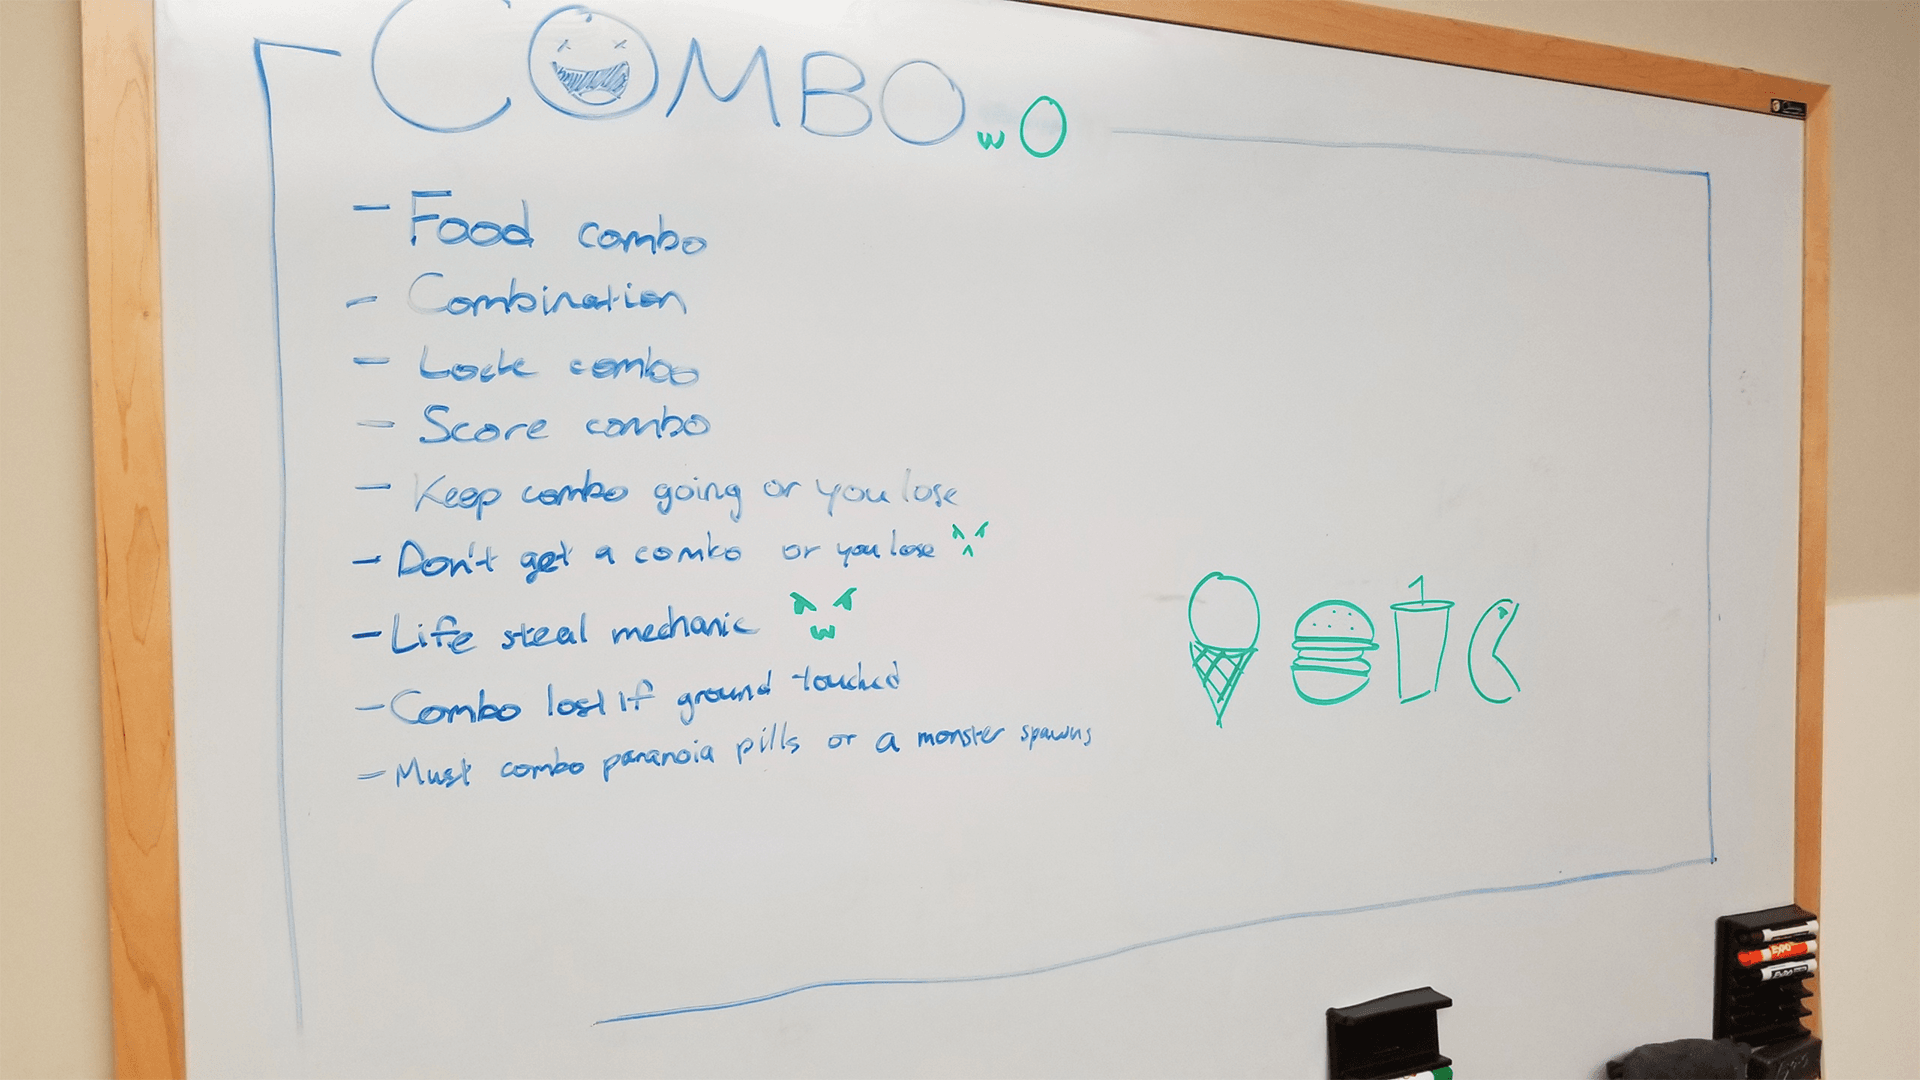 COMBO wO
- Food combo
- Combination
- Lock combo
- Score combo
- Keep combo going or you lose
- Don't get a combo or you lose
- Life steal mechanic
- Combo lost if ground touched
- Must combo paranoia pills or a monster spawns
EXPO